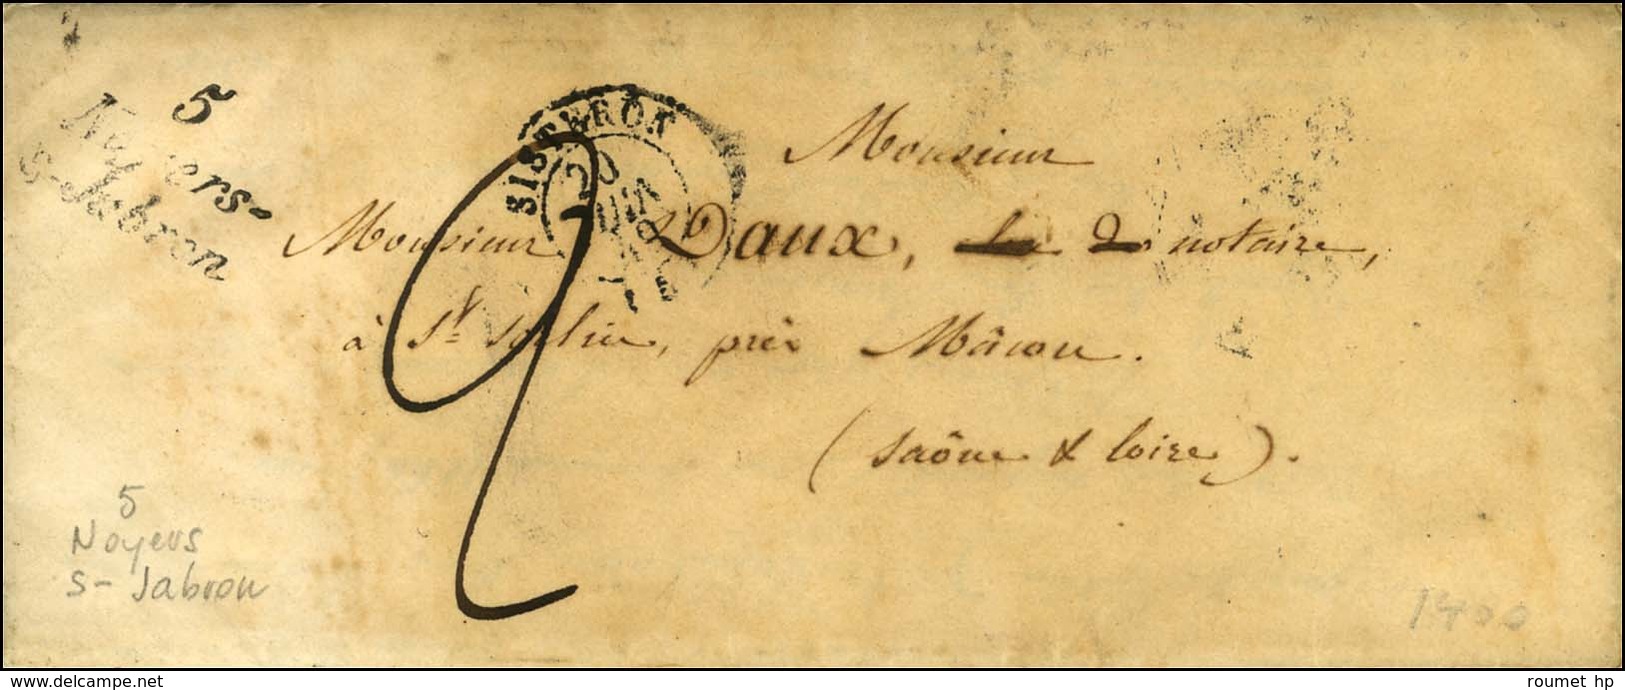 5
Noyers-
S-Jabron
SISTERON
20
2
Monsieur
Monsieur Daux, notaire,
à St Sorlin, près Mâcon.
(Saône & Loire).
5
Noyers
S-Jabron
1400
delcampe.net
roumet hp